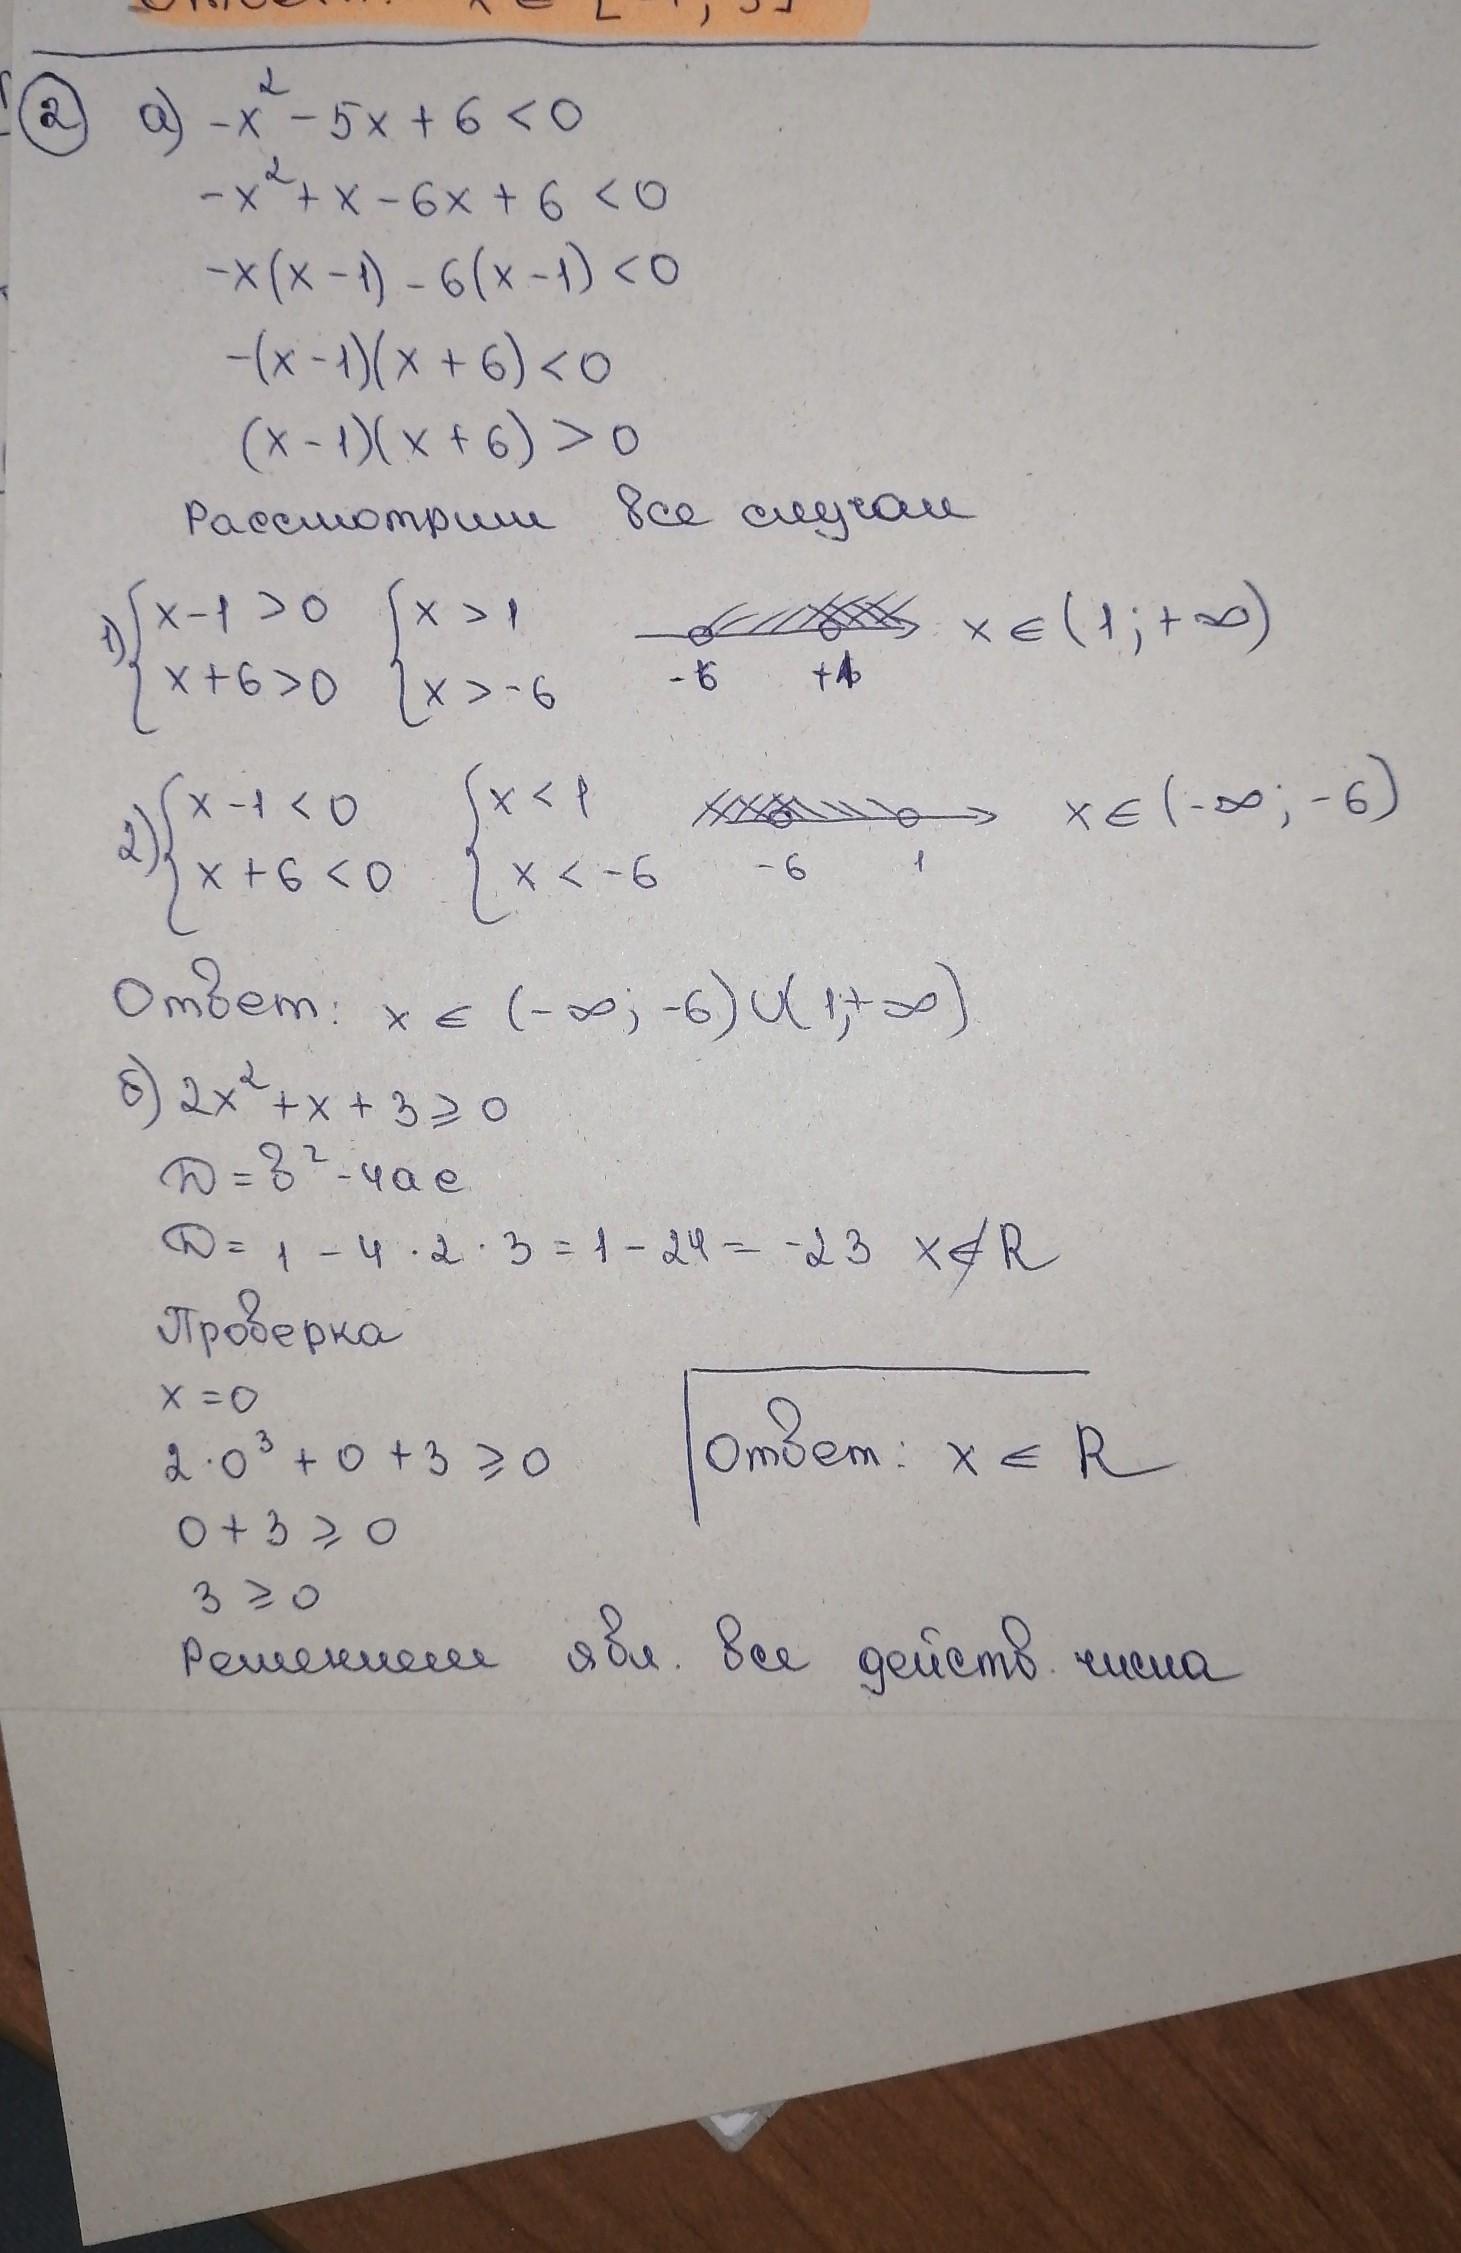 Ответ: x ∈ [-1; 5]
② а) -x² - 5x + 6 < 0
-x² + x - 6x + 6 < 0
-x(x - 1) - 6(x - 1) < 0
-(x - 1)(x + 6) < 0
(x - 1)(x + 6) > 0
Рассмотрим все случаи
1) { x - 1 > 0 { x > 1
x + 6 > 0 x > -6
-6 +1 x ∈ (1; +∞)
2) { x - 1 < 0 { x < 1
x + 6 < 0 x < -6
-6 1 x ∈ (-∞; -6)
Ответ: x ∈ (-∞; -6) ∪ (1; +∞)
б) 2x² + x + 3 ⩾ 0
D = b² - 4ac
D = 1 - 4 · 2 · 3 = 1 - 24 = -23 x ∉ R
Проверка
x = 0
2 · 0³ + 0 + 3 ⩾ 0
Ответ: x ∈ R
0 + 3 ⩾ 0
3 ⩾ 0
Решением явл. все действ. числа